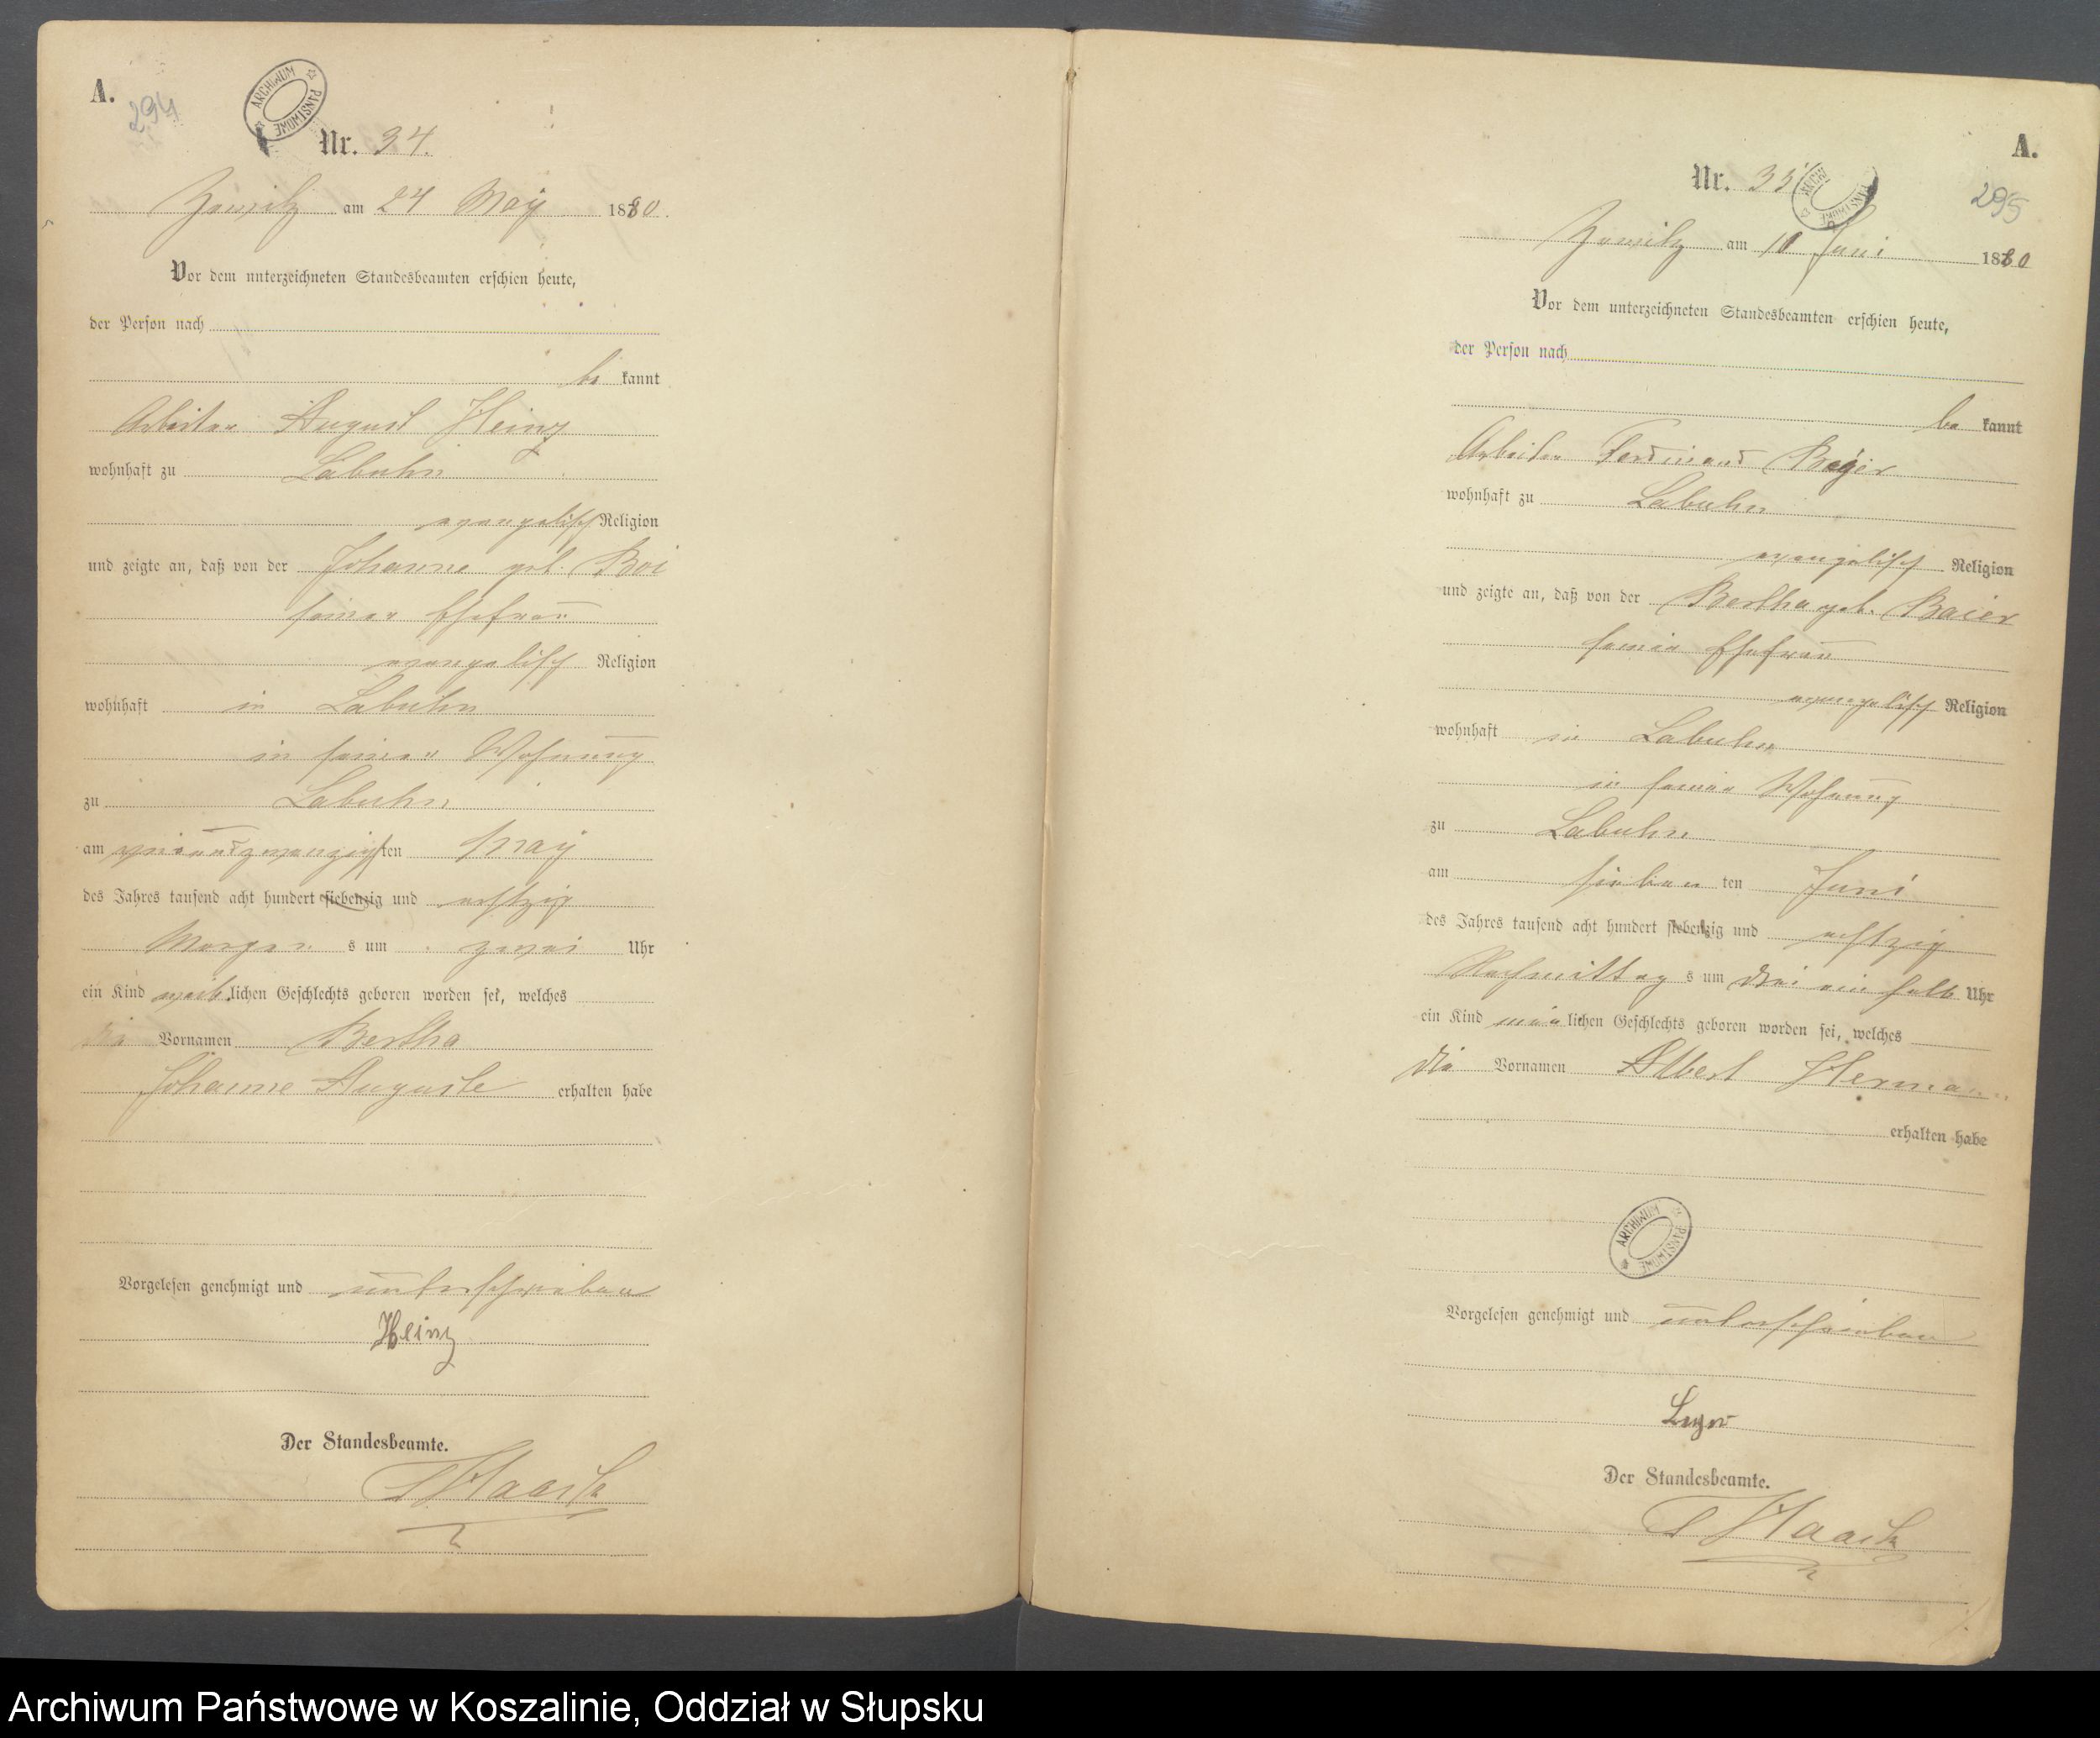 A.
294
ARCHIWUM PAŃSTWOWE
Nr. 34.
Zewitz am 24 May 1880.
Vor dem unterzeichneten Standesbeamten erschien heute,
der Person nach
be kannt
Arbeiter August Heinz
wohnhaft zu Labuhn
evangelisch Religion
und zeigte an, daß von der Johanne geb. Boi
seiner Ehefrau
evangelisch Religion
wohnhaft in Labuhn
in seiner Wohnung
zu Labuhn
am ten May
des Jahres tausend acht hundert siebenzig und achtzig
Morgen s um zwei Uhr
ein Kind weib lichen Geschlechts geboren worden sei, welches
die Vornamen Bertha
Johanne Auguste erhalten habe
Vorgelesen genehmigt und unterschrieben
Heinz
Der Standesbeamte.
Haack
A.
295
ARCHIWUM PAŃSTWOWE
Nr. 35
Zewitz am 10 Juni 1880
Vor dem unterzeichneten Standesbeamten erschien heute,
der Person nach
be kannt
Arbeiter Ferdinand
wohnhaft zu Labuhn
evangelisch Religion
und zeigte an, daß von der Bertha geb. Baier
seiner Ehefrau
evangelisch Religion
wohnhaft in Labuhn
in seiner Wohnung
zu Labuhn
am sieben ten Juni
des Jahres tausend acht hundert siebenzig und achtzig
Nachmittag s um drei ein halb Uhr
ein Kind män lichen Geschlechts geboren worden sei, welches
die Vornamen Albert Hermann
erhalten habe
ARCHIWUM PAŃSTWOWE
Vorgelesen genehmigt und unterschrieben
Der Standesbeamte.
Haack
Archiwum Państwowe w Koszalinie, Oddział w Słupsku